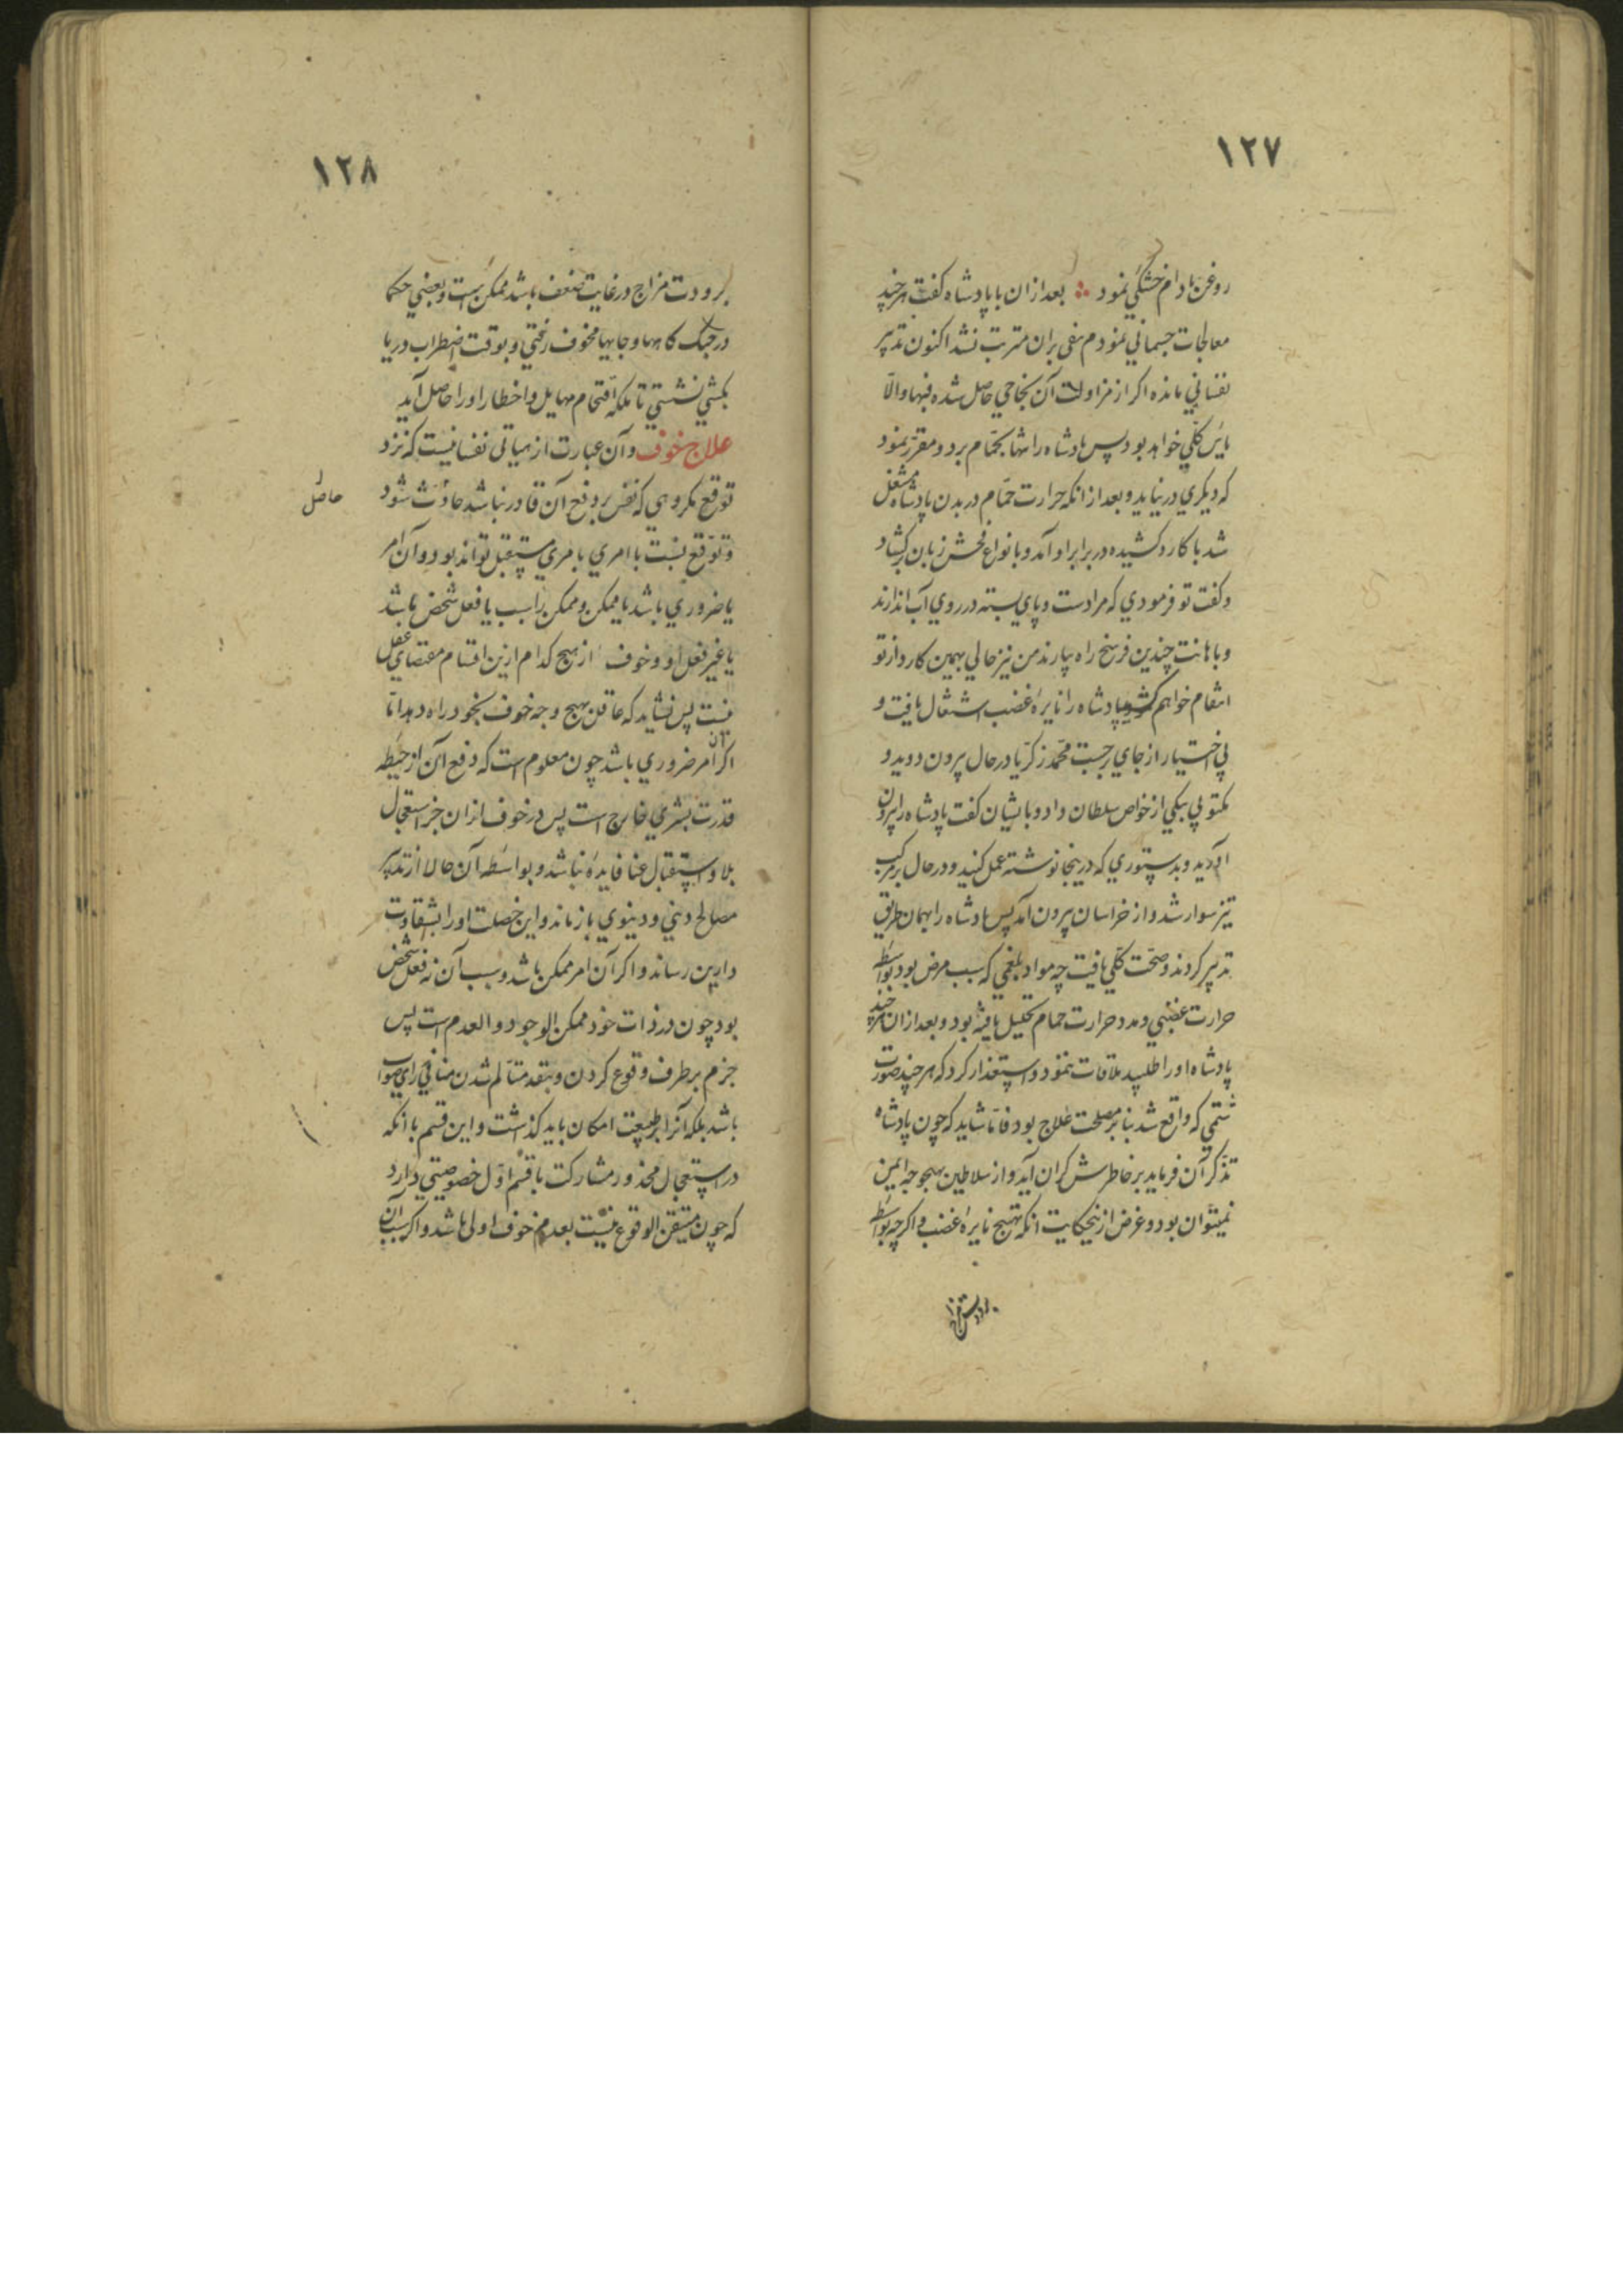 ١٢٧
روغن بادام خشکی نمود بعد از ان با پادشاه کفت هرچند
معالجات جسمانی نمودم نفعی بران مترتب نشد اکنون تدبیر
نفسانی مانده اکر از مزاولت آن نجاحی حاصل شده فبها والّا
یاس کلّی خواهد بود پس پادشاه را تنها بحمّام برد و مقرّر نمود
که دیکری در نیاید و بعد از انکه حرارت حمّام در بدن پادشاه مشتعل
شد با کارد کشیده در برابر او آمد و بانواع فحش زبان برکشاد
و کفت تو فرمودی که مرا دست و پای بسته در روی آب اندازند
و باهانت چندین فرسخ راه بیارند من نیز حالی بهمین کارد از تو
انتقام خواهم کشید پادشاه را نایرهٔ غضب اشتعال یافت و
بی اختیار از جای برجست محمّد زکریّا در حال بیرون دوید و
مکتوبی بیکی از خواص سلطان داد و بایشان کفت پادشاه را بیرون
آورید و بدستوری که درینجا نوشته عمل کنید و در حال بر مرکب
تیز سوار شد و از خراسان بیرون آمد پس پادشاه را بهمان طریق
تدبیر کردند و صحّت کلّی یافت چه مواد بلغمی که سبب مرض بود بواسطه
حرارت غضبی و مدد حرارت حمام تحلیل یافته بود و بعد از ان هرچند
پادشاه او را طلبید ملاقات ننمود و استعذار کرد که هر چند صورت
شتمی که واقع شد بنا بر مصلحت علاج بود فامّا شاید که چون پادشاه
تذکّر آن فرماید بر خاطرش کران آید و از سلاطین بهیچوجه ایمن
نمیتوان بود و غرض ازینحکایت انکه تهییج نایرهٔ غضب و اکرچه بواسطه
١٢٨
برودت مزاج در غایت ضعف باشد ممکن است و بعضی حکما
در جنک کاهها و جایهاء مخوف رفتی و بوقت اضطراب دریا
بکشتی نشستی تا ملکه اقتحام مهایل و اخطار او را حاصل آید
علاج خوف و آن عبارت از هیاتی نفسانیست که نزد
توقع مکروهی که نفس بر دفع آن قادر نباشد حادث شود
حاصل
و توقع نسبت با امری مستقبل تواند بود و آن امر
یا ضروری باشد یا ممکن و ممکن را سبب یا فعل شخص باشد
یا غیر فعل او و خوف از هیچ کدام ازین اقسام مقتضای عقل
نیست پس نشاید که عاقل بهیچ وجه خوف بخود راه دهد امّا
اکر آن امر ضروری باشد چون معلوم است که دفع آن از حیطه
قدرت بشری خارج است پس در خوف از ان جز استعجال
بلا و استقبال عنا فایده نباشد و بواسطه آن حالا از تدبیر
مصالح دینی و دنیوی باز ماند و این خصلت او را بشقاوت
دارین رساند و اکر آن امر ممکن باشد و سبب آن نه فعل شخص
بود چون در ذات خود ممکن الوجود و العدم است پس
جزم بر طرف وقوع کردن و بنقد متالّم شدن منافی رای صواب
باشد بلکه آنرا بر طبیعت امکان باید کذاشت و این قسم با انکه
در استعجال محذور مشارکت با قسم اوّل خصوصیتی دارد
که چون متیقن الوقوع نیست بعدم خوف اولی باشد و اکر سبب آن